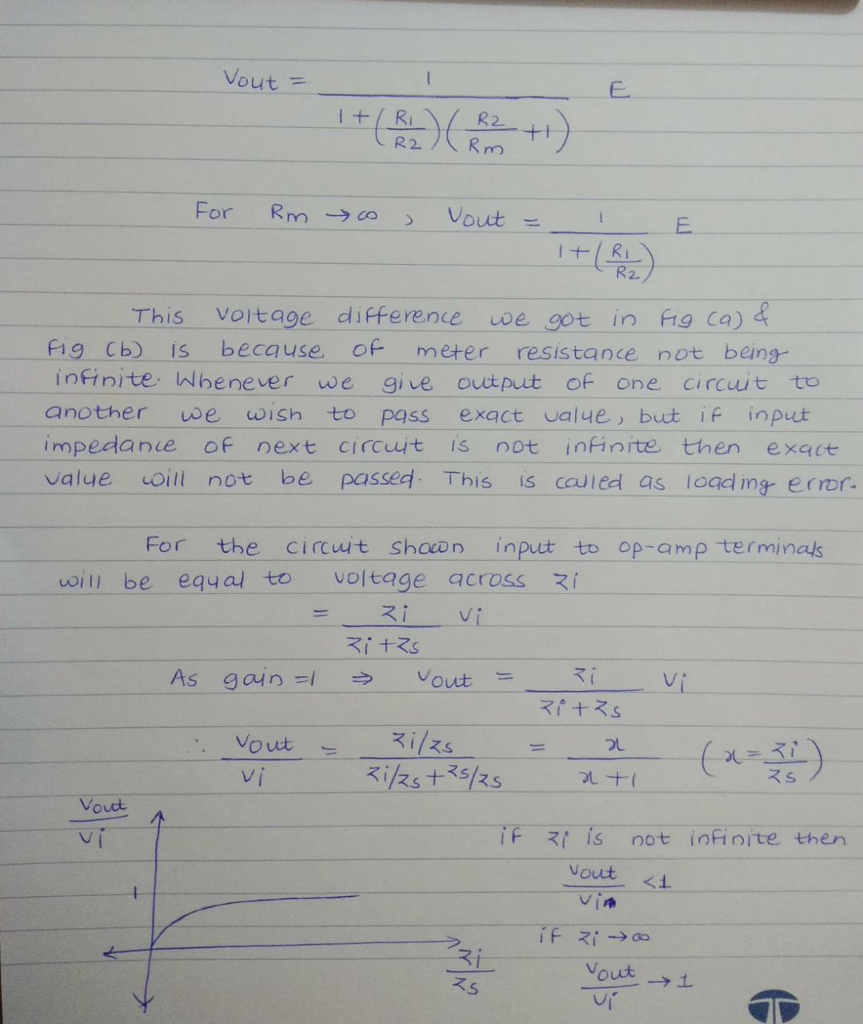 Vout = 1 / (1 + (R1/R2)(R2/Rm + 1)) E
For Rm → ∞ , Vout = 1 / (1 + (R1/R2)) E
This voltage difference we got in fig (a) &
fig (b) is because of meter resistance not being
infinite. Whenever we give output of one circuit to
another we wish to pass exact value, but if input
impedance of next circuit is not infinite then exact
value will not be passed. This is called as loading error.
For the circuit shown input to op-amp terminals
will be equal to voltage across Zi
= Zi / (Zi + Zs) Vi
As gain = 1 ⇒ Vout = Zi / (Zi + Zs) Vi
∴ Vout / Vi = (Zi/Zs) / (Zi/Zs + Zs/Zs) = x / (x + 1) (x = Zi/Zs)
Vout / Vi
1
Zi / Zs
if Zi is not infinite then
Vout / Vin < 1
if Zi → ∞
Vout / Vi → 1